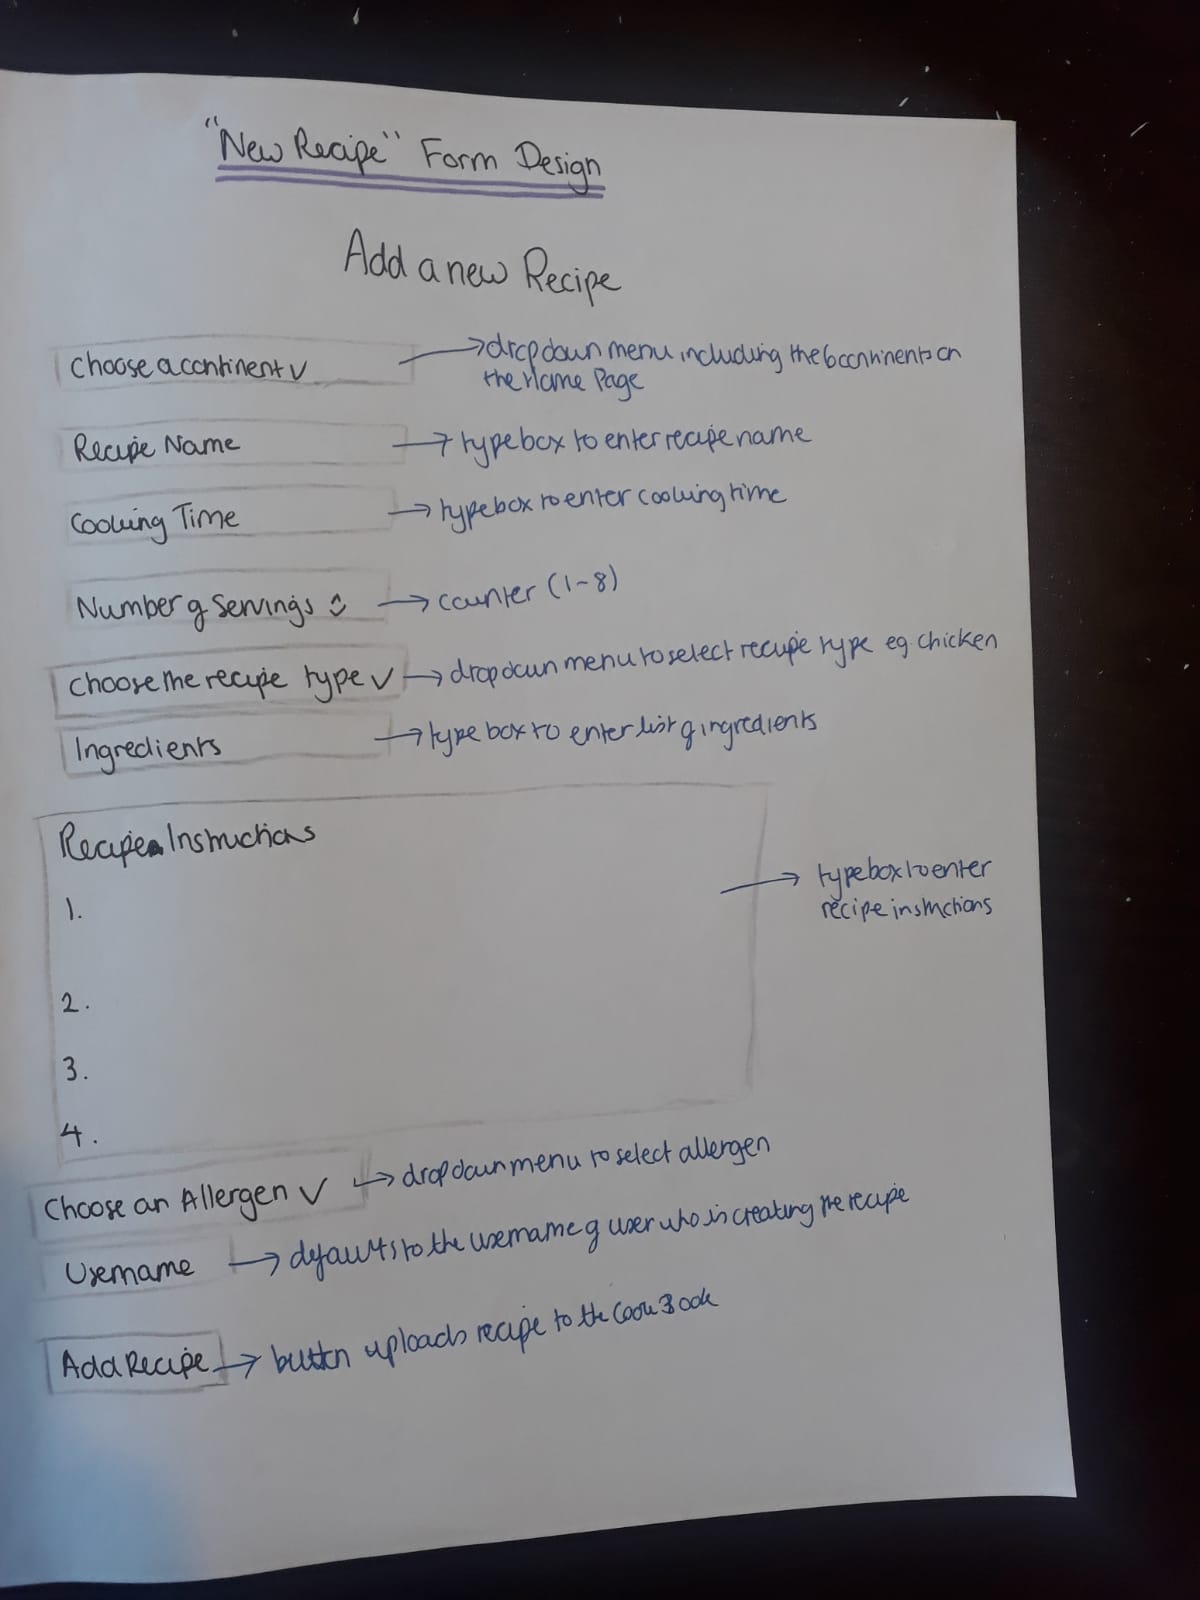 "New Recipe" Form Design
Add a new Recipe
Choose a continent ∨ → drop down menu including the 6 continents on
the Home Page
Recipe Name → type box to enter recipe name
Cooking Time → type box to enter cooking time
Number of Servings → counter (1-8)
Choose the recipe type ∨ → drop down menu to select recipe type eg. chicken
Ingredients → type box to enter list of ingredients
Recipe Instructions
1.
→ type box to enter
recipe instructions
2.
3.
4.
Choose an Allergen ∨ → drop down menu to select allergen
Username → defaults to the username of user who is creating the recipe
Add Recipe → button uploads recipe to the Cook Book